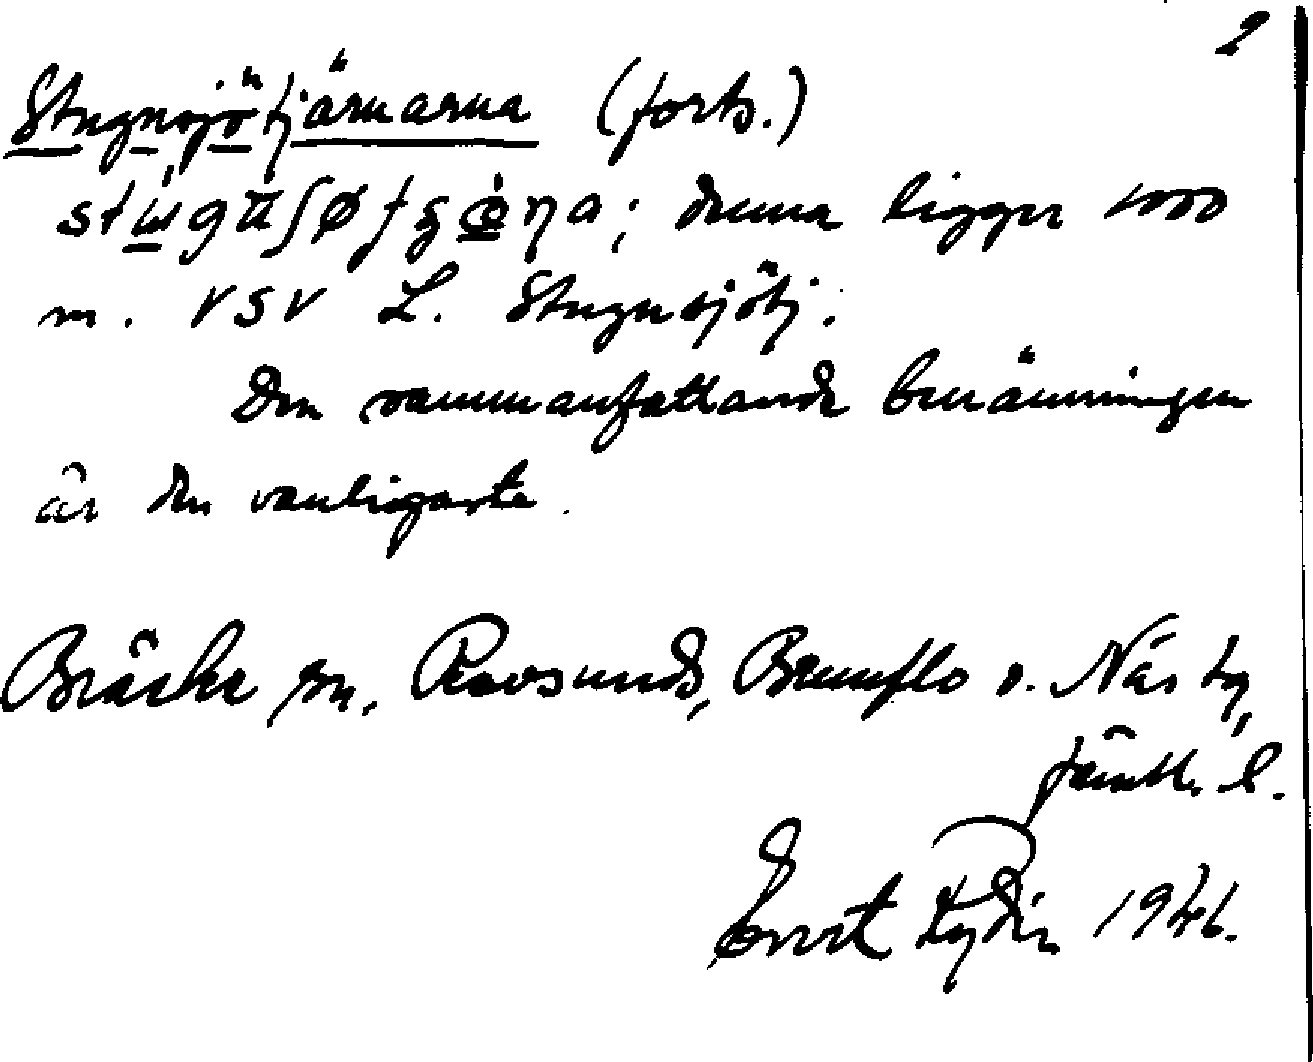 2
Stugnsjötjärnarna (forts.)
denna ligger 1000
m. VSV L. Stugnsjötj.
Den sammanfattande benämningen
är den vanligaste.
Bräcke sn, Revsunds, Brunflo o. Näs tg,
Jämtl. l.
Ernst 1946.